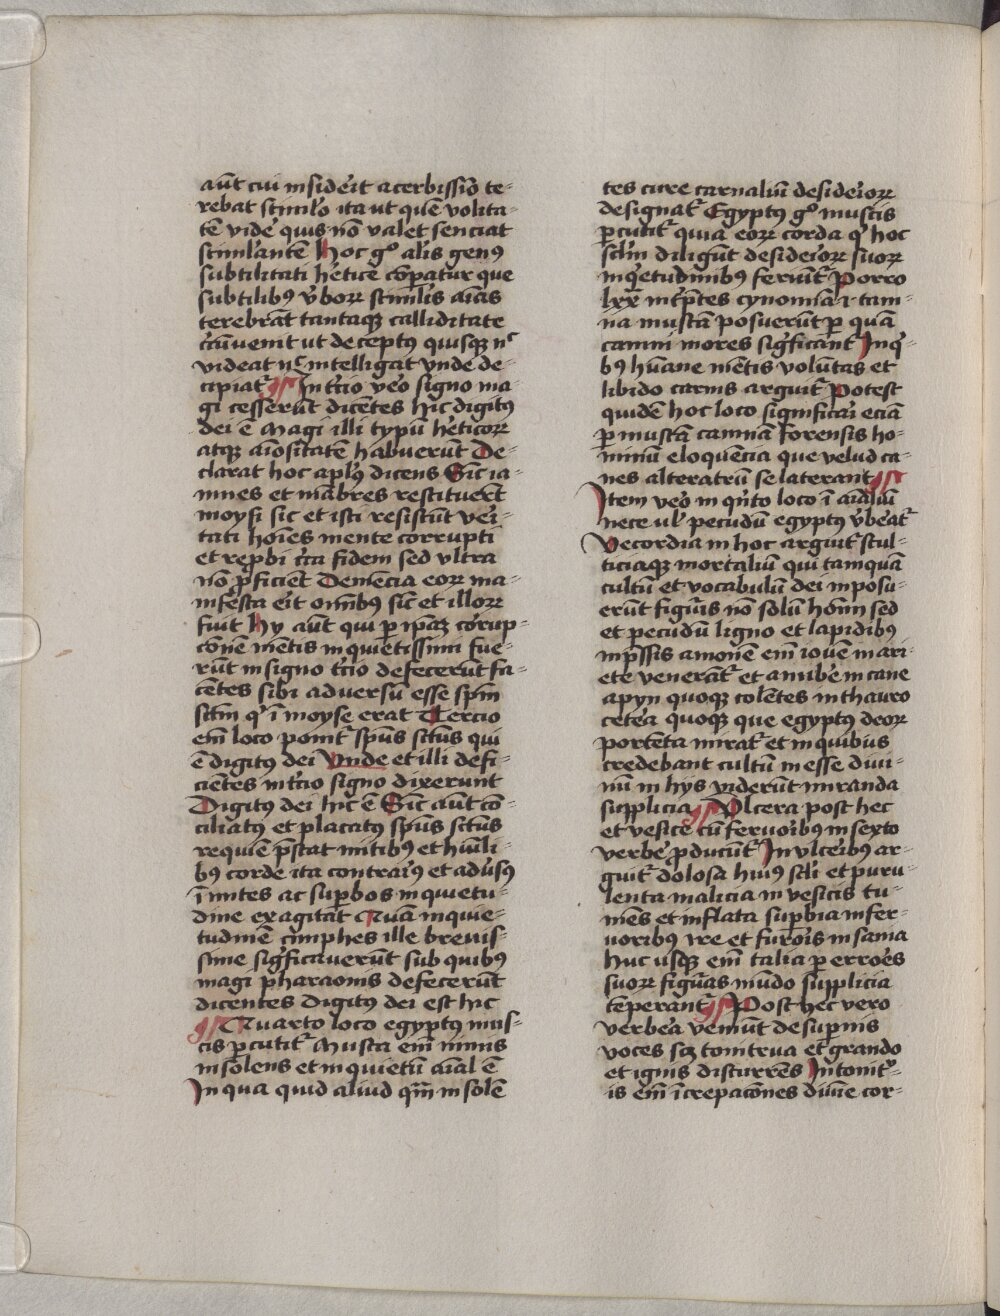 aūt cui insideīt acerbissiō te-
rebat stimlo ita ut quē volita-
tē vide quis nō valet senciat
stimlantē Hoc gº alis genꝰ
subtilitati hetice cōpatur que
subtilibꝰ v̄boꝝ stimlis aīas
terebrāt tantaqꝫ calliditate
cūuenit ut deceptꝰ quisqꝫ nc
videat nc intelligat vnde de-
cipiat᷑ ¶ In tcio veo signo ma-
gi cesserūt dicētes hic digitꝰ
dei ē Magi illi typū heticoꝝ
atqꝫ aīositatē habuerūt De-
clarat hoc aplꝰ dicens Sic ia-
mnes et mābres restituert
moysi sic et isti resistūt vei-
tati hoīes mente corrupti
et repbi cca fidem sed vltra
nō pficiēt Demēcia eoꝝ ma-
nifesta eīt omībꝰ sic et illoꝝ
fuit Hy aūt qui p ipāꝫ corup-
conē mētis inquietissimi fue-
rūt in signo tcio defecerūt fa-
cētes sibi adversū esse spm
scm qͥ ī moyse erat Tercio
em loco ponit᷑ spūs sctūs qui
ē digitꝰ dei Vnde et illi defi-
cietes in tcio signo dixerunt
Digitꝰ dei hic ē Sic aūt cō-
ciliatꝰ et placatꝰ spūs sctūs
requiē pstat mitibꝰ et huīli-
bꝰ corde ita contraiꝰ et adūsꝰ
īmites ac supbos inquietu-
dine exagitat Quā inquie-
tudinē cimphes ille brevis-
sime sigficaverūt sub quibꝰ
magi pharaonis defecerūt
dicentes Digitꝰ dei est hic
¶ Quarto loco egyptꝰ mus-
cis pcutit᷑ Musca em nimis
insolens et inquietū aīal ē
In qua quid aliud qm̄ insolē
tes cure carnaliū desideioꝝ
designat᷑ Egyptꝰ gº muscis
pcutit᷑ quia eoꝝ corda qͥ hoc
sclm diligūt desideioꝝ suoꝝ
inqͥetudinibꝰ feriūt᷑ Porro
lxx intptes cynomiā ⁊ cani-
na muscā posuerūt p quā
canini mores sigficant᷑ Inqͥ-
bꝰ hūane mētis volūtas et
libido carnis arguit᷑ Potest
quidē hoc loco significai eciā
p muscā caninā forensis ho-
minū eloquēcia que velud ca-
nes alteratrū se laterant ¶
Item veo in qnto loco ī aīaliū
nece ul pecudū egyptꝰ v̄beat᷑
Vecordia in hoc arguit᷑ stul-
ticiaqꝫ mortaliū qui tamquā
cultū et vocabulū dei inposu-
erūt figuis nō solū homn sed
et pecudū ligno et lapidibꝰ
inpssis amonē em iovē in ari-
ete venerāt᷑ et anubē in cane
apyn quoqꝫ colētes in thauro
cetea quoqꝫ que egyptꝰ deoꝝ
portēta mirat᷑ et in quibus
credebant cultū inesse diui-
nū in hys viderūt miranda
supplicia ¶ Vlcera post hec
et vesice cū fervoibꝰ in sexto
verbe pducūt᷑ In vlceibꝰ ar-
guit᷑ dolosa huiꝰ scli et puru-
lenta malicia in vesicis tu-
mēs et inflata supbia in fer-
uoribꝰ ire et furois insania
huc usqꝫ em talia p erroēs
suoꝝ figuas mūdo supplicia
tēperant᷑ ¶ Post hec vero
verbea veniūt de supnis
voces scꝫ tonitrua et grando
et ignis discurrēs In tonit-
is em īcrepacōnes diuīe cor-